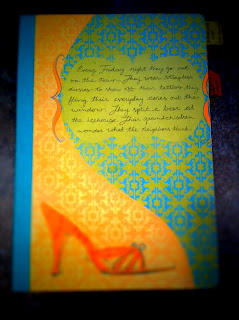 Every Friday night they go out
on the town. They wear strapless
dresses to show off their tattoos. They
fling their everyday cares out the
window. They split a beer at
the icehouse. Their grandchildren
wonder what the neighbors think.